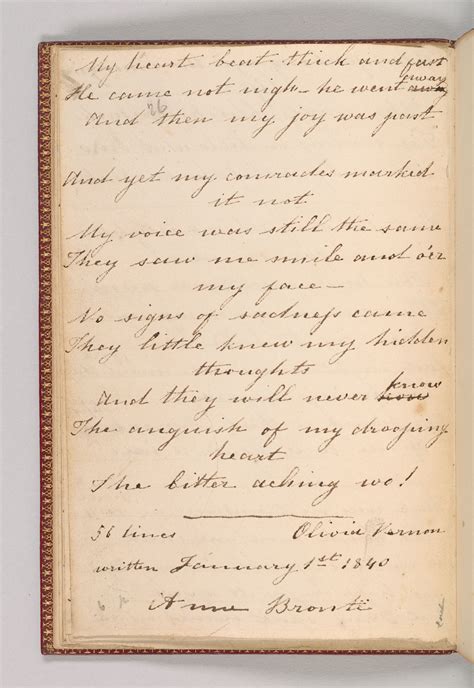 My heart beat thick and fast
away
He came not nigh - he went away
26
And then my joy was past
And yet my comrades marked
it not
My voice was still the same
They saw me smile and o'er
my face —
No signs of sadness came
They little knew my hidden
thoughts
And they will never know
The anguish of my drooping
heart
The bitter aching wo!
56 lines Olivia Vernon
written January 1st 1840
Anne Brontë